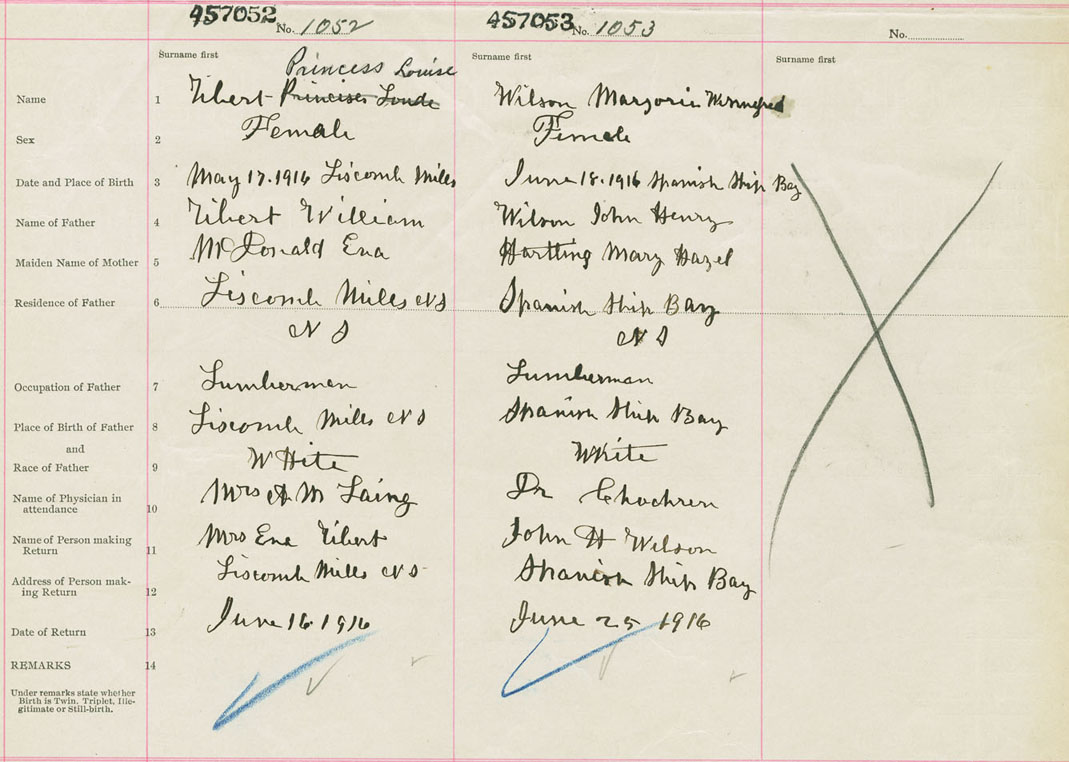 457052 No. 1052
457053 No. 1053
No.
Surname first
Surname first
Surname first
Princess Louise
Name 1 Tibert Wilson Marjorie
Sex 2 Female Female
Date and Place of Birth 3 May 17. 1916 Liscomb Mills June 18. 1916 Spanish Ship Bay
Name of Father 4 Tibert William Wilson John Henry
Maiden Name of Mother 5 McDonald Ena Hartling Mary Hazel
Residence of Father 6 Liscomb Mills NS Spanish Ship Bay
NS NS
Occupation of Father 7 Lumberman Lumberman
Place of Birth of Father 8 Liscomb Mills NS Spanish Ship Bay
and
Race of Father 9 White White
Name of Physician in
attendance 10 Mrs A M Laing Dr
Name of Person making
Return 11 Mrs Ena Tibert John H Wilson
Address of Person mak-
ing Return 12 Liscomb Mills NS Spanish Ship Bay
Date of Return 13 June 16 1916 June 25 1916
REMARKS 14
Under remarks state whether
Birth is Twin, Triplet, Ille-
gitimate or Still-birth.